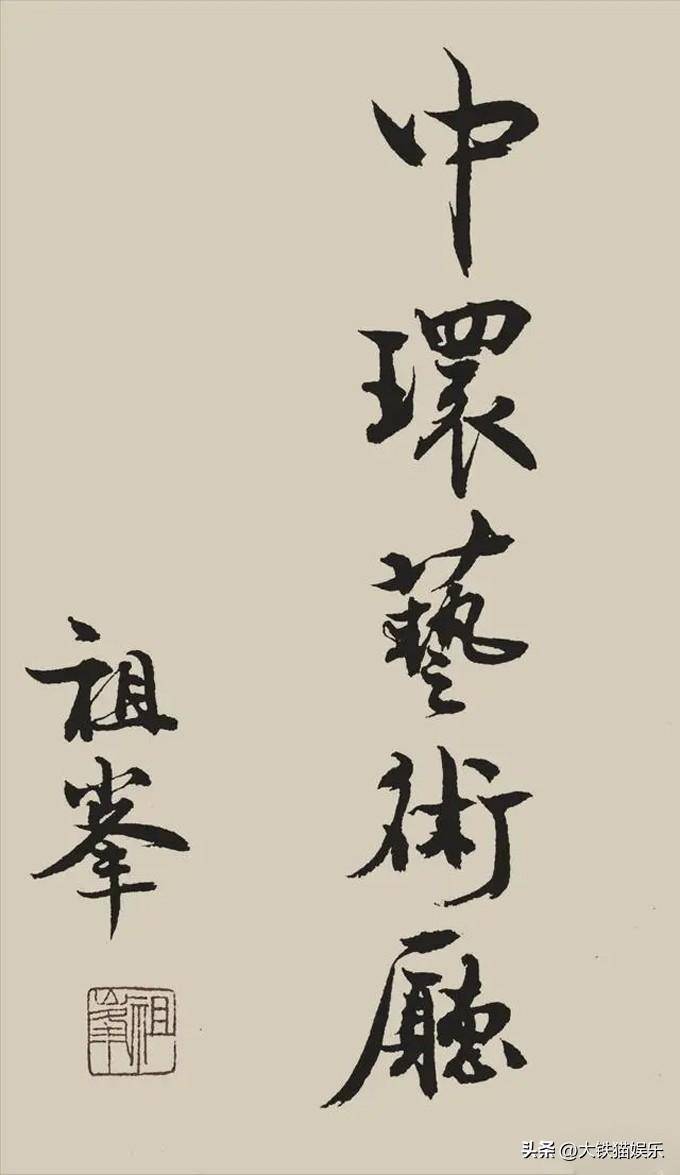 中環藝術廳
祖峯
祖峯
头条 @大铁猫娱乐